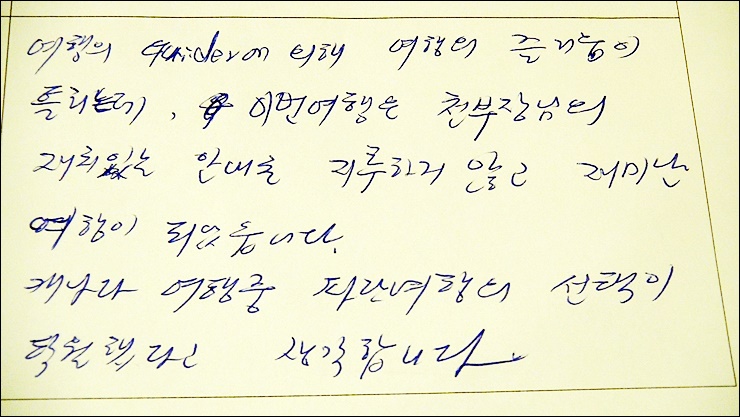 여행의 guider에 의해 여행의 즐거움이
틀리는데, 이번여행은 천부장님의
재치있는 안내로 지루하지 않고 재미난
여행이 되었습니다.
캐나다 여행중 파란여행의 선택이
탁월했다고 생각합니다.